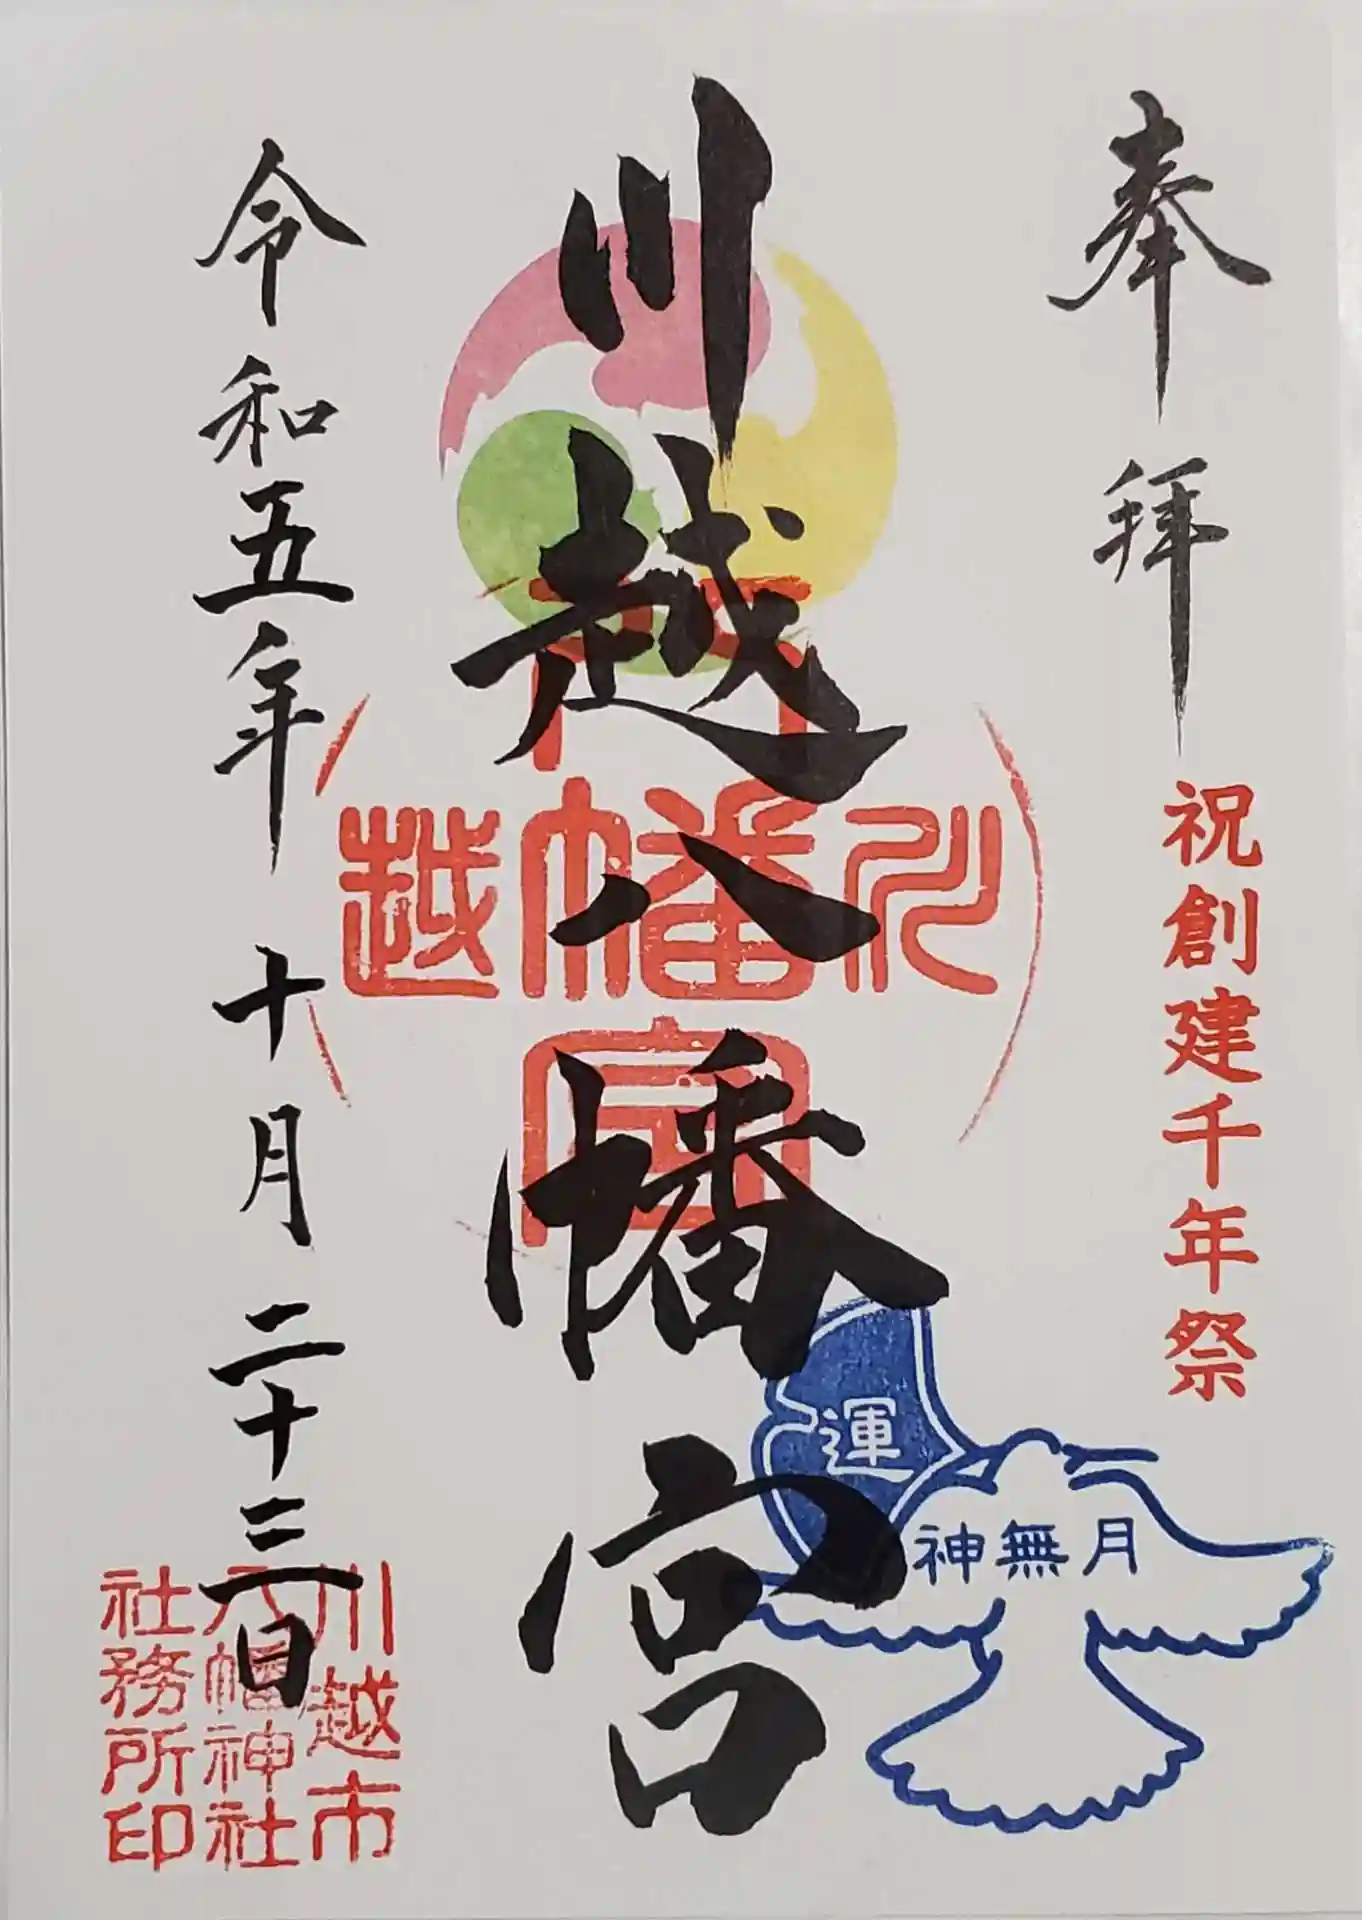 奉拝
祝創建千年祭
川越八幡宮
川
八幡宮
越
運
神無月
令和五年十月二十三日
川越市
八幡神社
社務所印